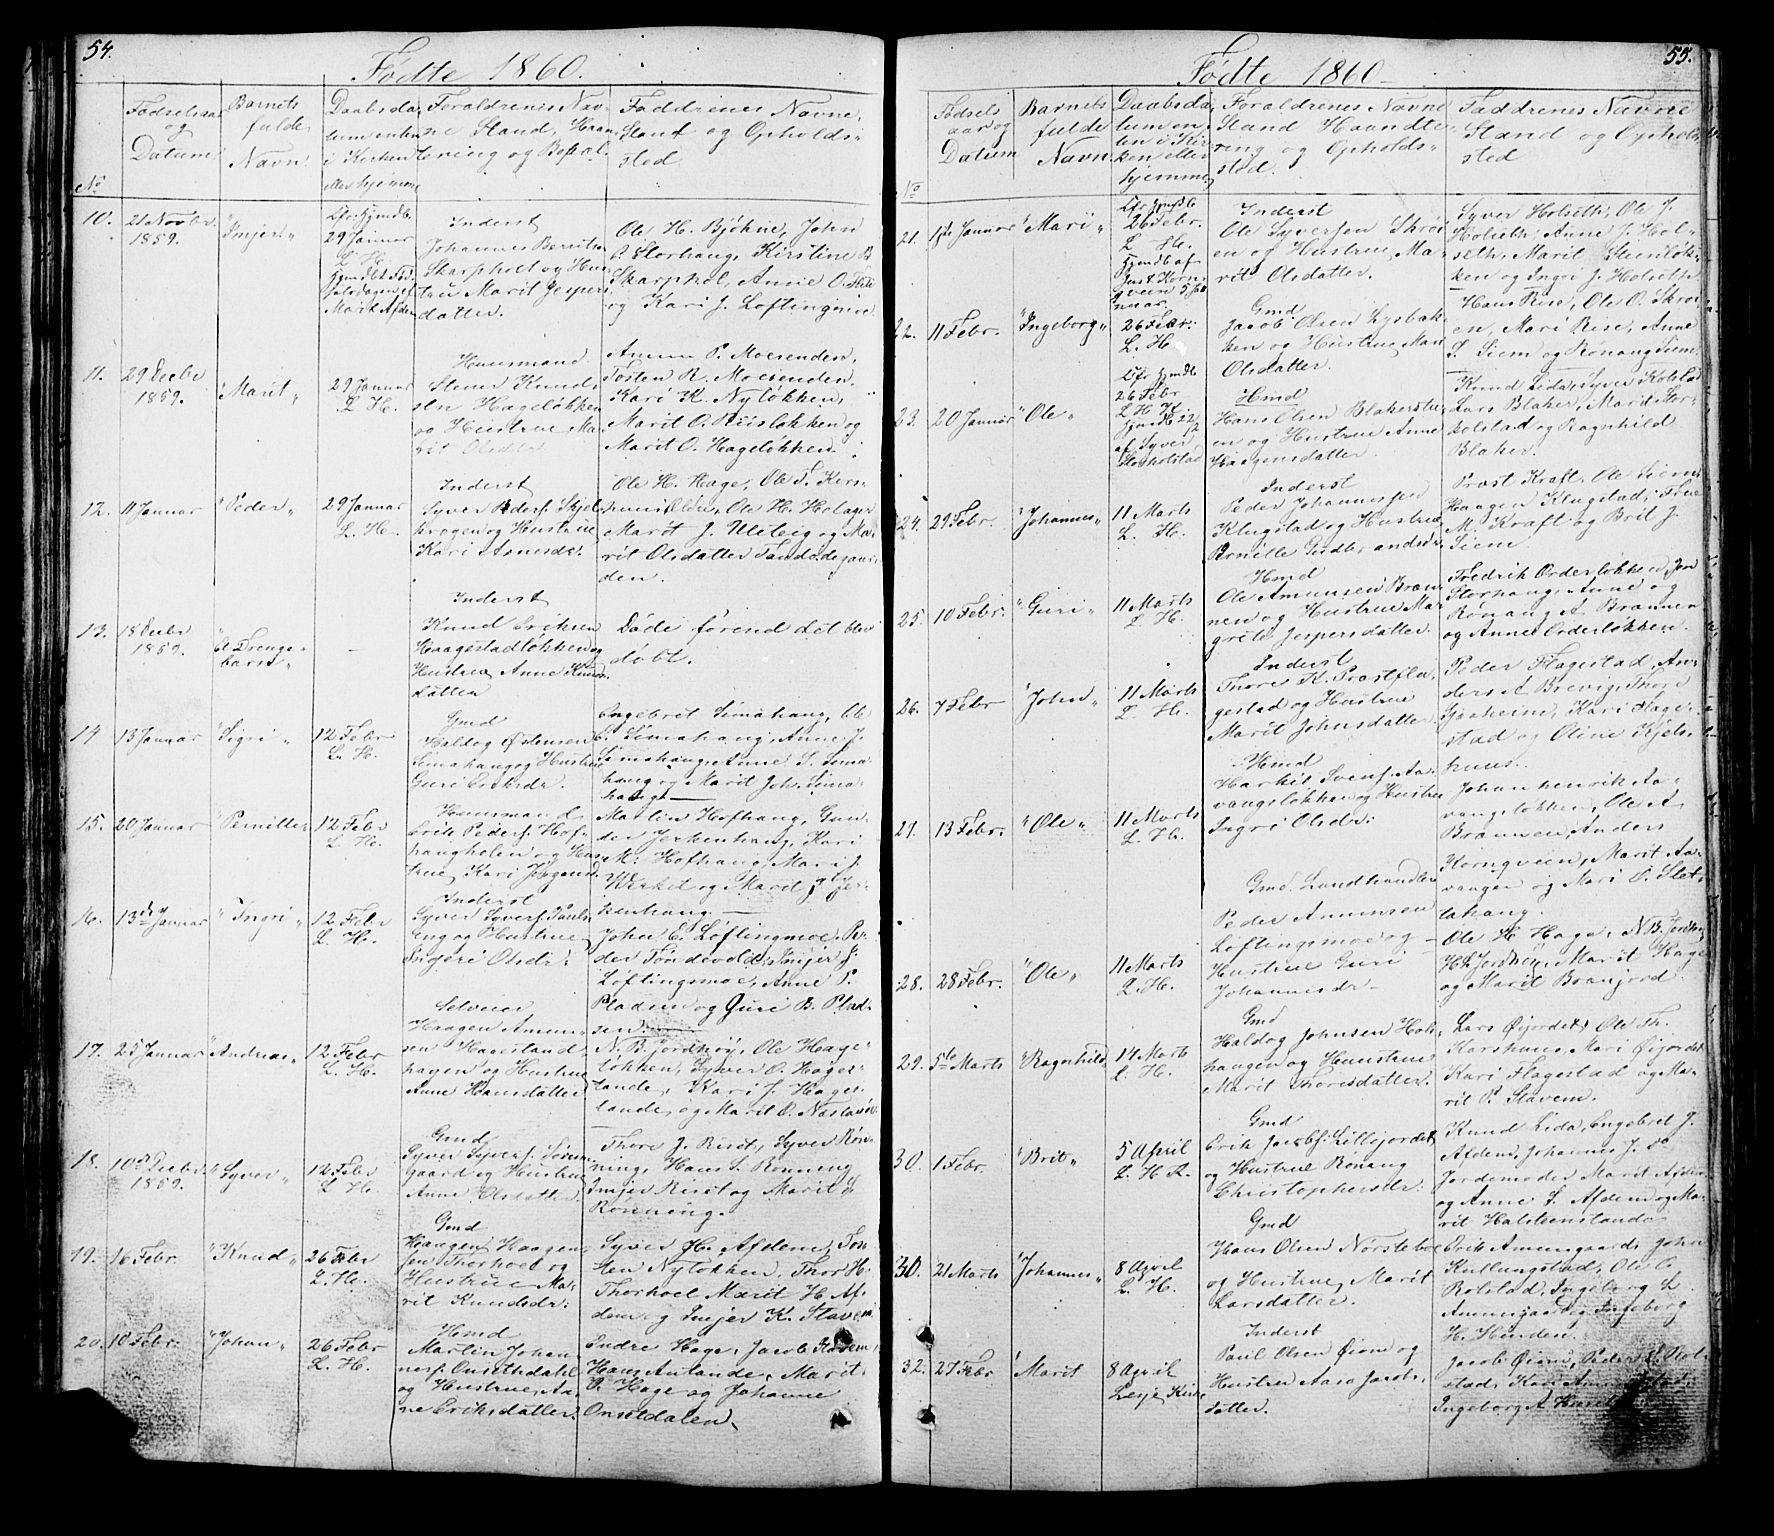 54.
Fødte 1860.
Fødselsaar og Datum
Barnets fulde Navn
Daabsdatum enten i Kirken eller hjemme
Forældrenes Navne Stand, Haandtering og Bopæl
Faddrenes Navne, Stand og Opholdssted
No
10.
21 Novbr. 1859.
"Imjer"
29 Januar
L. H.
Inderst
Skarpholt og Hustru Marit Jespersdatter.
Ole H. Bjøkne, John
P. Storhaug, Kirstine B
og Kari J. Løftingmoe
11.
29 Decbr 1859.
"Marit"
29 Januar
L. H.
Huusmand
Stener Knudsen Hageløkken og Hustrue Marit Olsdtr
Amun P. Moesenden,
Tosten R. Moesenden,
Kari K. Nyløkken,
Marit O. Riisløkken og
Marit O. Hageløkken.
12.
11 Januar
"Peder"
29 Januar
L. H.
Inderst
Syver Pedersf. Skjelkrogen og Hustrue
Kari Arnesdr.
Ole H. Hage, Ole T. Kirs-
Ole H. Holager
Marit J. Uleleig og Marit Olsdatter Tandedsgaarden.
13.
18 Decbr 1859.
"Et Drengebarn"
-
Inderst
Knud Eriksen
Haagestadløkken og
Hustrue Anne Knudsdatter
Døde førend det blev
døbt.
14
13 Januar
"Sigri"
12 Febr
L. H.
Gmd
Haldog Østensen
Simahaug og Hustrue
Guri Eriksdr.
Engebret Simahaug, Ole
Simahaug, Anne J.
Simahaug, Anne S. Simahaug og Marit Joh. Simahaug.
15.
20 Januar
"Pernille"
12 Febr
L. H.
Huusmand
Erik Pedersf. Hofhaugholen og Hustrue Kari Jørgensd
Martin Hofhaug, Gunder Jerkenhaug, Kari
M. Hofhaug, Mari J.
Wirket og Marit J. Jerkenhaug.
16.
13de Januar
"Ingri"
12 Febr
L. H.
Inderst
Syver Syversf. Paulseng og Hustrue
Ingeri Olsdr.
John E. Løftingmoe, Peder Tøndevold, Imjer J.
Løftingsmoe, Anne P.
Pladsen og Guri B. Pladsen.
17.
25 Januar
"Andreas"
12 Febr
L. H.
Selveier
Haagen Amunsen Hagestandhagen og Hustrue
Anne Hansdatter
N. B. Jordhøy, Ole Hageløkken, Syver O. Hagestande, Kari J. Hagestande, og Marit O.
18.
10de Decbr 1859.
"Syver"
12 Febr
L. H.
Gmd
Syver Syversf. Sørumgaard og Hustrue
Anne Olsdatter
Thore J. Riset, Syver Rønning, Hans S. Rønning
Imjer Riset og Marit S.
Rønning.
19.
16 Febr.
"Knud"
26 Febr
L. H.
Gmd
Haagen Haagensen Thorholt og
Hustrue Marit Knudsdr.
Syver H. Afdem, Tosten Nyløkken, Thor H.
Thorhoel Marit H. Afdem og Imjer K. Stavem
20.
10 Febr.
"Johan"
26 Febr
L. H.
Hmd
Martin Johannesf. Onsetdahl
og Hustrue Aane Eriksdatter.
Endre Hage, Jacob Stavem,
Hans Aulande, Marit
O. Hage og Johanne
Onsetdalen.
55.
Fødte 1860
Fødselsaar og Datum
Barnets fulde Navn.
Daabsdatum enten i Kirken eller hjemme.
Forældrenes Navne Stand Haandtering og Opholdssted.
Faddrenes Navne Stand og Opholdssted
No
21.
1ste Januar
"Mari"
26 Febr.
L. H.
Inderst
Ole Syversen Skrøien og Hustrue Marit Olsdatter.
Syver Holseth, Ole J.
Holseth, Anne J. Holseth, Marit Steenløkken og Ingri J. Holseth
22.
11 Febr.
"Ingeborg"
26 Febr.
L. H.
Gmd
Jacob Olsen Lysbakken og Hustrue Mari
Olsdatter.
Hans Rise, Ole O. Skrøien, Mari Rise, Anne
S. Siem og Rønaug Siem.
23.
20 Januar
"Ole"
26 Febr
L. H. K.
af Syver Storkolstad
Hmd
Hans Olsen Blakerstuen og Hustrue Anne
Haagensdatter.
Knud Lida, Syver Kolstad
Lars Blaker, Marit Storkolstad og Ragnhild
Blaker.
24.
29 Febr.
"Johannes"
11 Marts
L. H.
Inderst
Peder Johannesen
Klugstad og Hustrue
Pernille Gudbrandsdr.
Provst Kraft, Ole Siem,
Haagen Klugstad, Frue
M. Kraft og Brit J.
Siem
25.
10 Febr.
"Guri"
11 Marts
L. H.
Hmd
Ole Amunsen Brænnen og Hustrue Margrete Jespersdatter.
Fredrik Orderløkken, Jon
Storhaug, Anne og
Rønaug A. Brænnen
og Anne Orderløkken.
26.
7 Febr
"John"
11 Marts
L. H.
Inderst
Thore K. Prestflagestad og Hustrue
Marit Johnsdatter
Peder Flagestad, Anders A Brevig, Thore
Gjersheim, Kari Flagestad og Oline Kjelshuus.
27.
13 Febr.
"Ole"
11 Marts
L. H.
Hmd
Harkel Svensf. Aavangsløkken og Hustrue
Ingri Olsdr:
Johan henrik Aavangsløkken, Ole A.
Brænnen, Anders
Horngveen, Marit Aavangen og Mari O. Sletlahaug.
28.
28 Febr.
"Ole"
11 Marts
L. H.
Gmd. Landhandler
Peder Ammunsen
Løftingsmoe og
Hustrue Guri
Johannesdr.
Ole H. Hage, N. B. Jordhøy
H. P. Jordhøy, Marit Hage
og Marit Brænjord
29.
5te Marts
"Ragnhild"
14 Marts
L. H.
Gmd
Haldog Johnsen Holshaugen og Hustrue
Marit Thoresdatter.
Lars Øijordet, Ole Th.
Karshuus, Mari Øijordet
Kari Flagestad og Marit P. Stavem.
30.
1 Febr.
"Brit"
5 April
L. H. K.
Gmd
Erik Jacobsf. Lillejordet
og Hustrue Rønaug
Christophersdr.
Knud Lida, Engebret J.
Afdem, Johannes J. do
Jordemoder Marit Afdem
og Anne S. Afdem og Marit Halsteenstande
30.
21 Marts
"Johannes"
8 April
L. H.
Gmd
Hans Olsen Nørsteboe
og Hustrue Marit
Larsdatter.
Erik Amungaard, John
Kullungstad, Ole O.
Rolstad, Ingeborg L
Amungaard og Ingeborg
H. Enden.
32.
27 Febr
Marit
8 April
Lesje Kirke
Inderst
Paul Olsen Øiom og
Hustrue Aase Jacobsdatter.
Jacob Øiom, Peder
Ingeborg A.